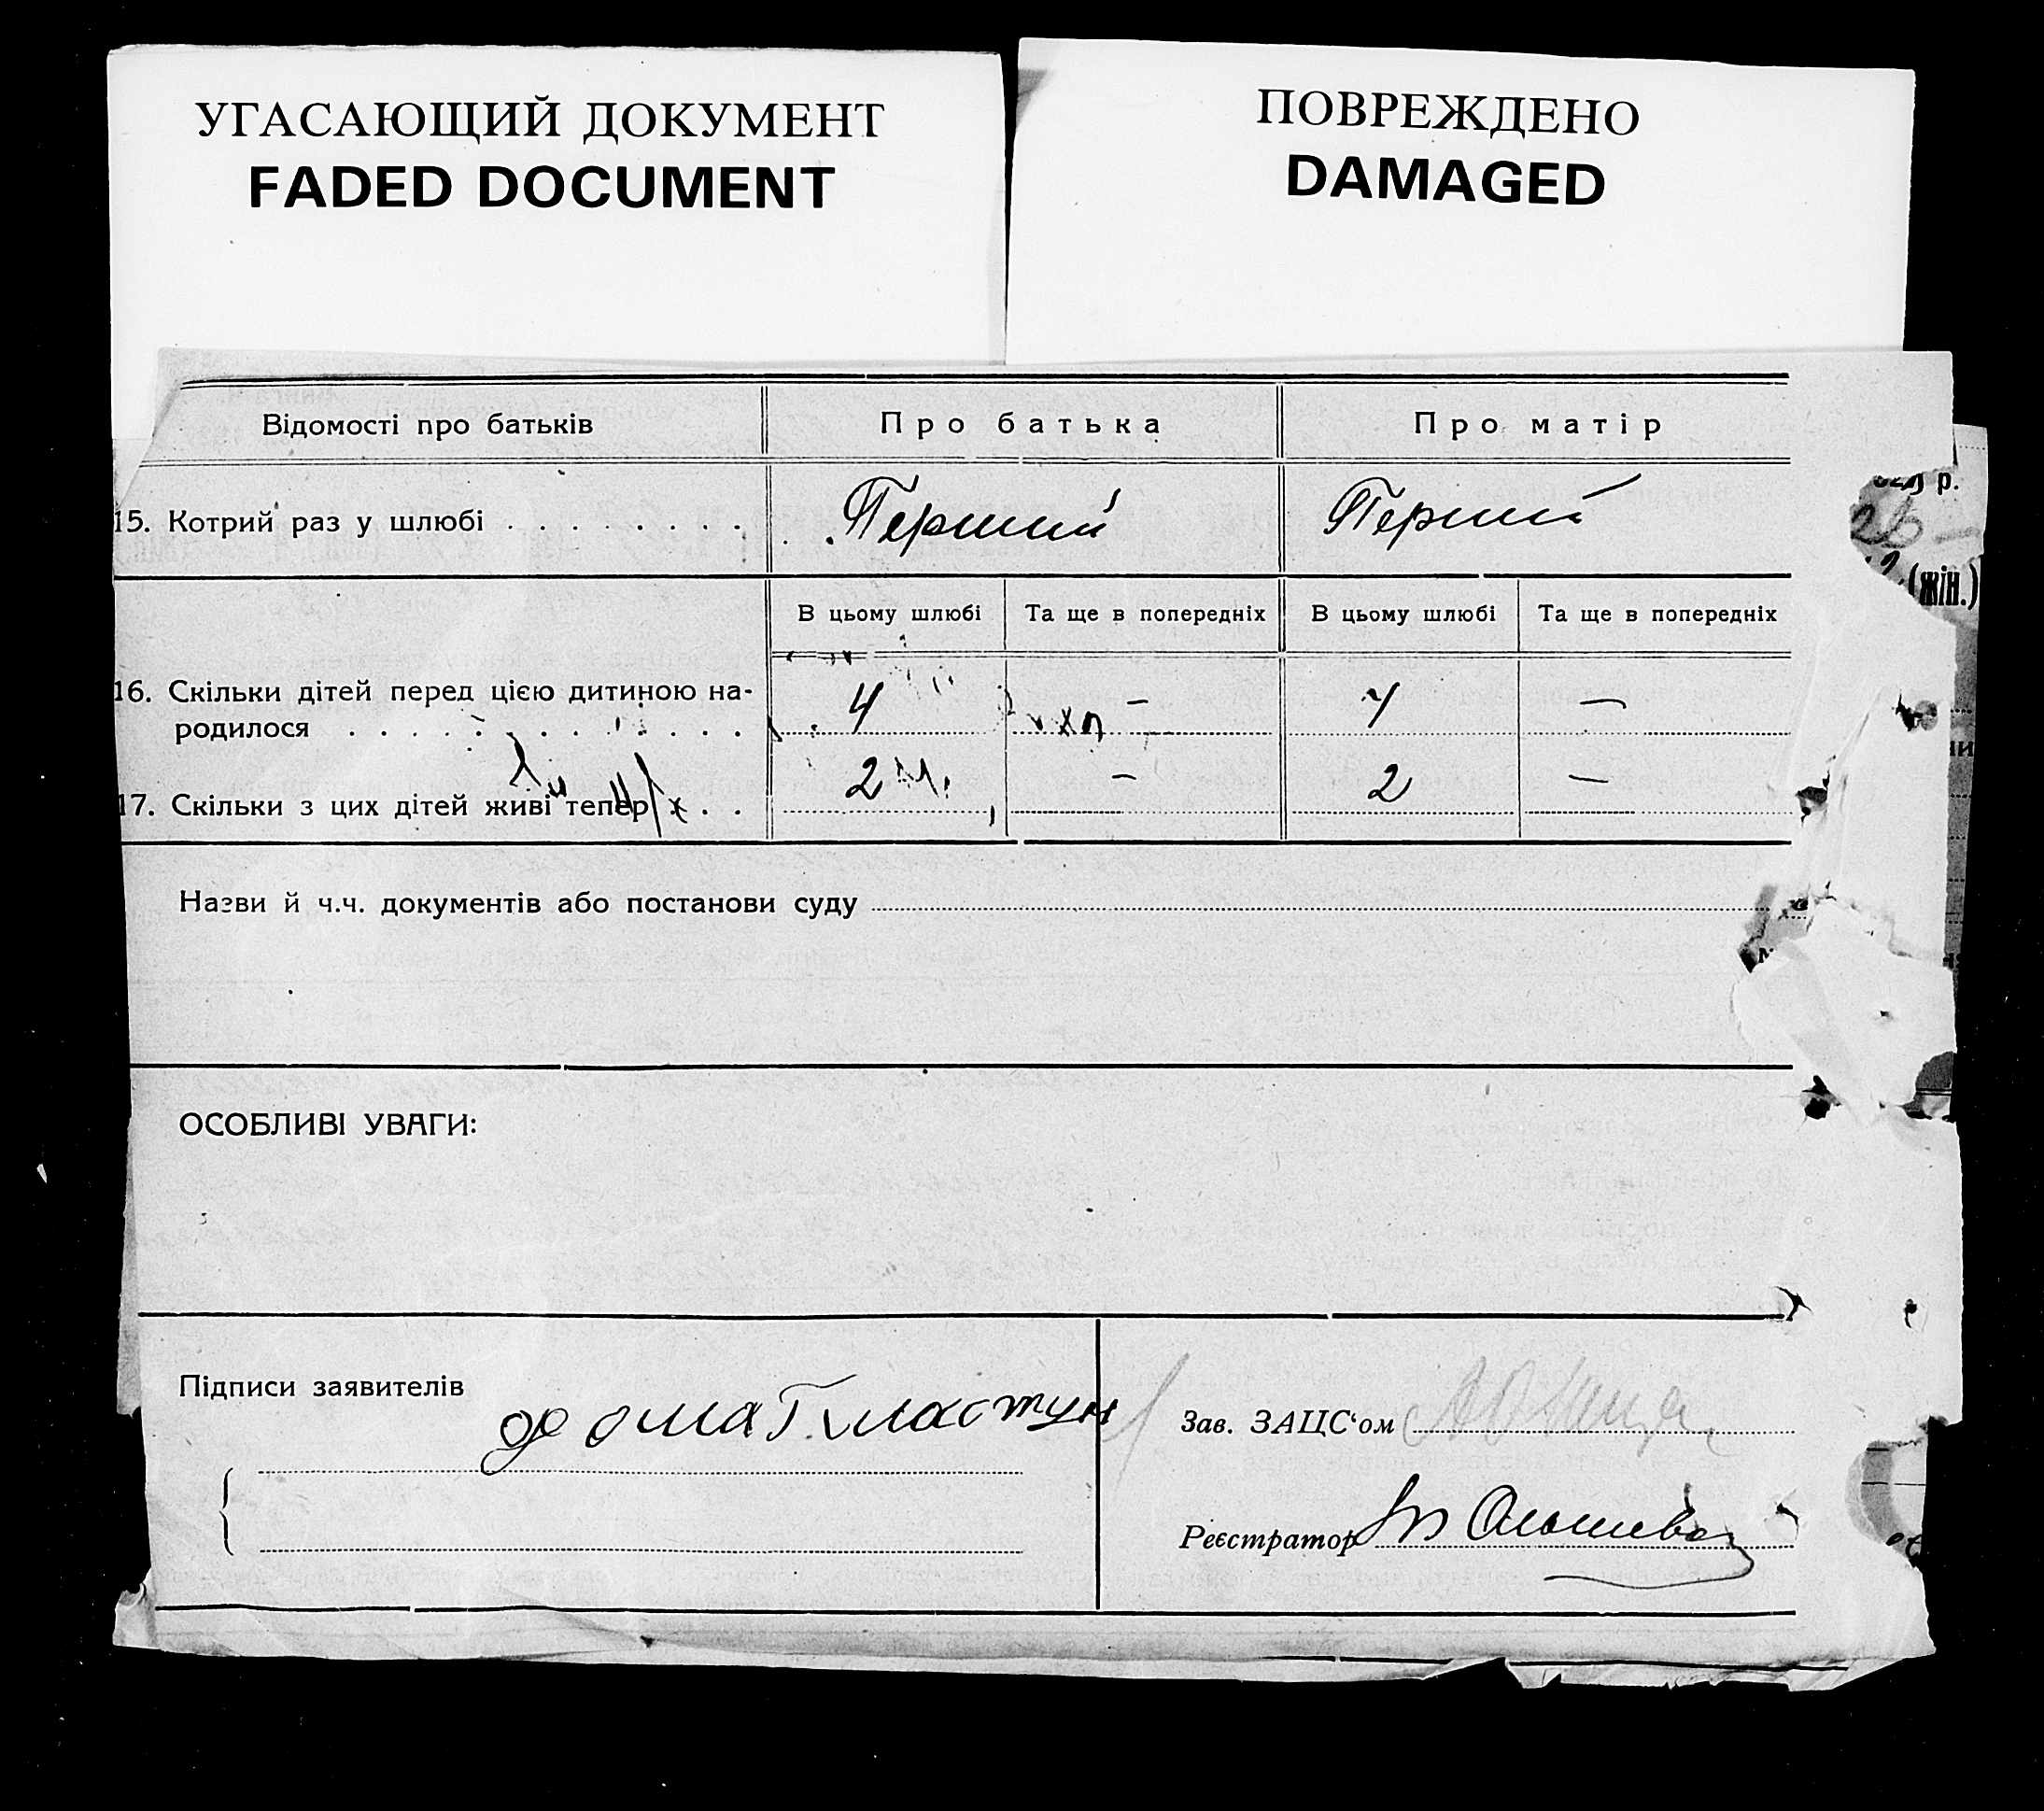 УГАСАЮЩИЙ ДОКУМЕНТ
FADED DOCUMENT
ПОВРЕЖДЕНО
DAMAGED
Відомості про батьків
Про батька
Про матір
15. Котрий раз у шлюбі
Перший
Перший
В цьому шлюбі
Та ще в попередніх
В цьому шлюбі
Та ще в попередніх
16. Скільки дітей перед цією дитиною на-
родилося
4
—
—
17. Скільки з цих дітей живі тепер
2
—
2
—
Назви й ч.ч. документів або постанови суду
ОСОБЛИВІ УВАГИ:
Підписи заявителів
Зав. ЗАЦС‘ом
Реєстратор
р.
(жін.)